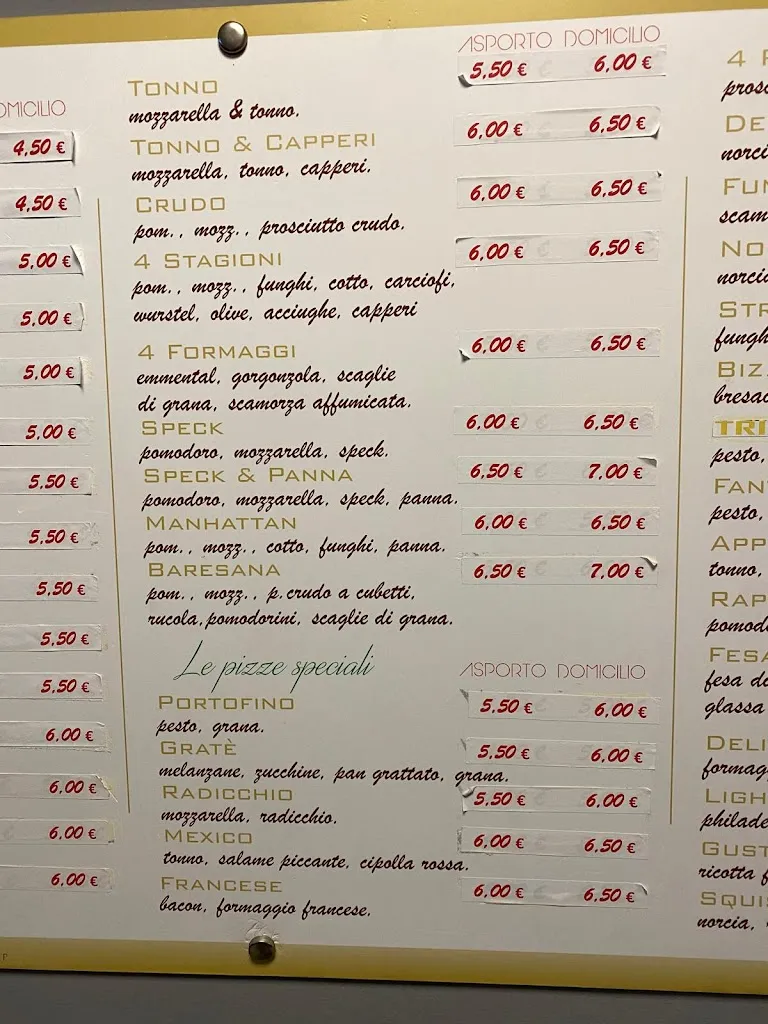 DOMICILIO
4,50 €
4,50 €
5,00 €
5,00 €
5,00 €
5,00 €
5,50 €
5,50 €
5,50 €
5,50 €
5,50 €
6,00 €
6,00 €
6,00 €
6,00 €
ASPORTO DOMICILIO
TONNO 5,50 € 6,00 €
mozzarella & tonno.
TONNO & CAPPERI 6,00 € 6,50 €
mozzarella, tonno, capperi.
CRUDO 6,00 € 6,50 €
pom., mozz., prosciutto crudo.
4 STAGIONI 6,00 € 6,50 €
pom., mozz., funghi, cotto, carciofi,
wurstel, olive, acciughe, capperi
4 FORMAGGI 6,00 € 6,50 €
emmental, gorgonzola, scaglie
di grana, scamorza affumicata.
SPECK 6,00 € 6,50 €
pomodoro, mozzarella, speck.
SPECK & PANNA 6,50 € 7,00 €
pomodoro, mozzarella, speck, panna.
MANHATTAN 6,00 € 6,50 €
pom., mozz., cotto, funghi, panna.
BARESANA 6,50 € 7,00 €
pom., mozz., p.crudo a cubetti,
rucola, pomodorini, scaglie di grana.
Le pizze speciali ASPORTO DOMICILIO
PORTOFINO 5,50 € 6,00 €
pesto, grana.
GRATÈ 5,50 € 6,00 €
melanzane, zucchine, pan grattato, grana.
RADICCHIO 5,50 € 6,00 €
mozzarella, radicchio.
MEXICO 6,00 € 6,50 €
tonno, salame piccante, cipolla rossa.
FRANCESE 6,00 € 6,50 €
bacon, formaggio francese.
4
prosc
DE
norci
FUN
scam
NO
norcia
STR
fungh
BIZ
bresa
TRI
pesto,
FAN
pesto,
APP
tonno,
RAP
pomod
FESA
fesa d
glassa
DELI
formagg
LIGH
philade
GUST
ricotta f
SQUIS
norcia,